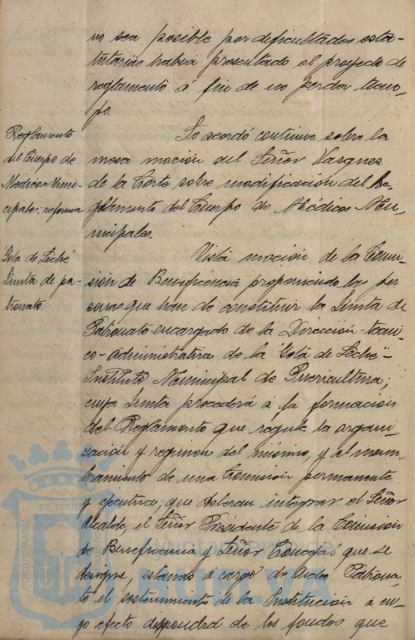 no sea posible por dificultades esta-
tutarias habia presentado el proyecto de
reglamento á fin de no perder tiem-
po.
Reglamento
del Cuerpo de
Médicos Muni-
cipales. reforma
Se acordó continue sobre la
mesa moción del Señor Vasquez
de la Corte sobre modificación del Re-
glamento del Cuerpo de Médicos Mu-
nicipales.
"Gota de Leche"
Junta de pa-
tronato
Vista moción de la Comi-
sión de Beneficencia proponiendo las per
sonas que han de constituir la Junta de
Patronato encargado de la Dirección
co-administrativa de la "Gota de Leche"-
Instituto Municipal de Puericultura;
cuya Junta procederá á la formación
del Reglamento que regule la organi-
zación y regimen del mismo, y al nom-
bramiento de una Comision permanente
y ejecutiva, que deberan integrar el Señor
Alcalde, el Señor Presidente de la Comision
de Beneficencia y Señor Concejal que se
designe, estando á cargo de dicho Patrona-
to el sostenimiento de la Institucion á cu-
yo efecto dispondrá de los fondos que